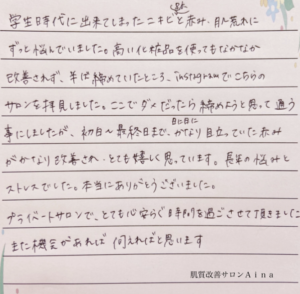 学生時代に出来てしまったニキビと赤み、肌荒れに
ずっと悩んでいました。高い化粧品を使ってもなかなか
改善されず、半ば締めていたところ、instagramでこちらの
サロンを拝見しました。ここでダメだったら締めようと思って通う
事にしましたが、初日〜最終日まで、日に日にかなり目立っていた赤み
がかなり改善され、とても嬉しく思っています。長年の悩みと
ストレスでした。本当にありがとうございました。
プライベートサロンで、とても安らぐ時間を過ごさせて頂きました
また機会があれば伺えればと思います
肌質改善サロンAina